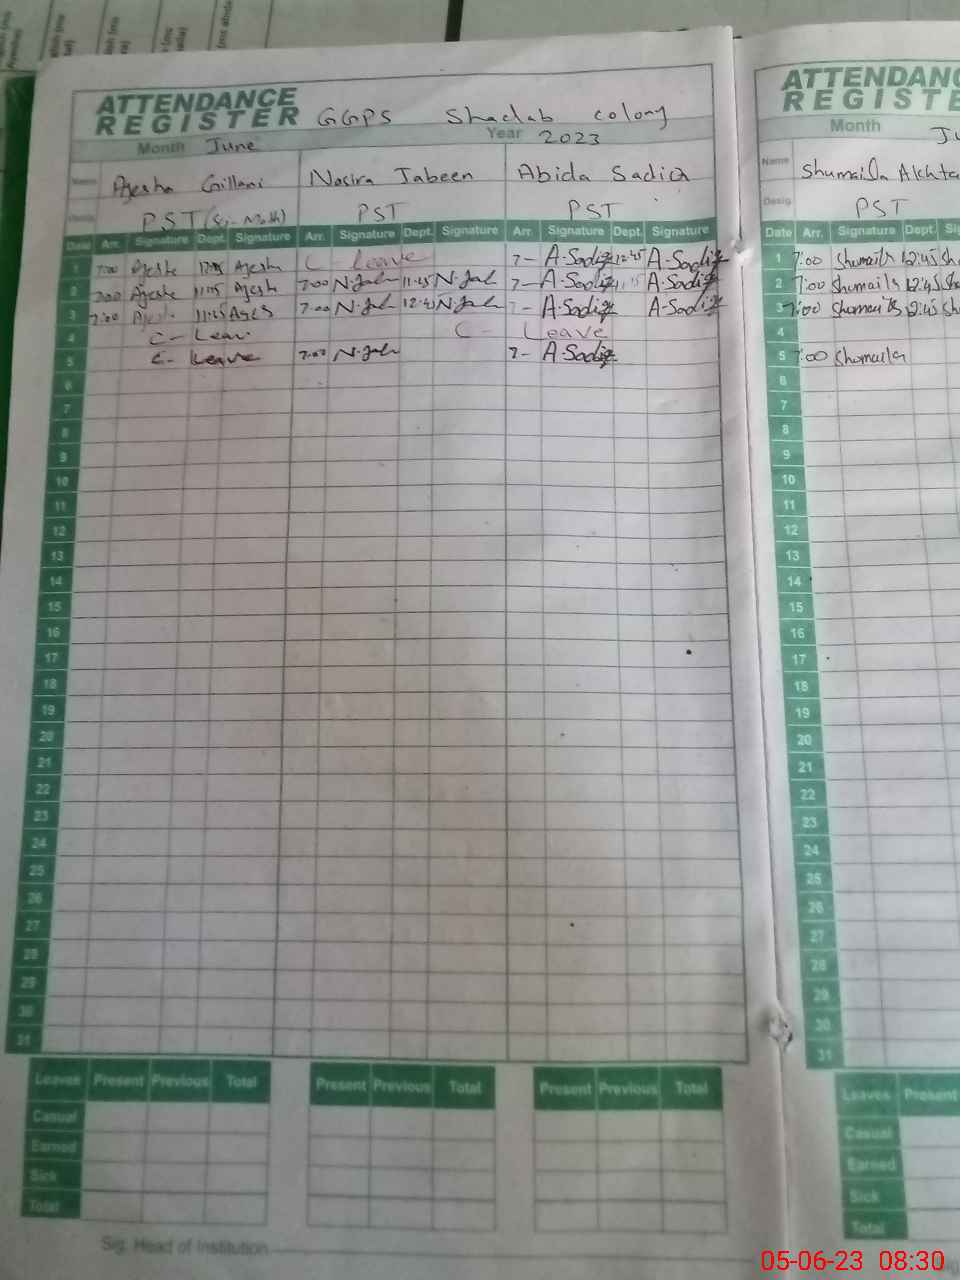 ATTENDANCE
REGISTER GGPS Shadab colony
Month June Year 2023
Name Ayesha Gillani Nasira Jabeen Abida Sadiq
Desig. PST (Sci-Math) PST PST
Date Arr. Signature Dept. Signature Arr. Signature Dept. Signature Arr. Signature Dept. Signature
1 7:00 Ayesha Ayesha C- Leave 7- A-Sadiq 12:45 A-Sadiq
2 7:00 Ayesha 11:15 Ayesha 7:00 N.Jab 11:45 N.Jab 7- A-Sadiq 11:15 A-Sadiq
3 7:00 Ayesha 11:45 7:00 N.Jab 12:45 N.Jab 7- A-Sadiq A-Sadiq
4 C- Leave C- Leave
5 C- Leave 7:00 N.Jab 7- A-Sadiq
6
7
8
9
10
11
12
13
14
15
16
17
18
19
20
21
22
23
24
25
26
27
28
29
30
31
Leaves Present Previous Total Present Previous Total Present Previous Total
Casual
Earned
Sick
Total
Sig. Head of Institution
ATTENDANC
REGISTE
Month Ju
Name Shumaila Akhta
Desig. PST
Date Arr. Signature Dept. S
1 7:00 Shumaila 12:45 Sh
2 7:00 Shumaila 12:45 Sh
3 7:00 Shumaila 12:45 Sh
4
5 7:00 Shumaila
6
7
8
9
10
11
12
13
14
15
16
17
18
19
20
21
22
23
24
25
26
27
28
29
30
31
Leaves Present
Casual
Earned
Sick
Total
05-06-23 08:30